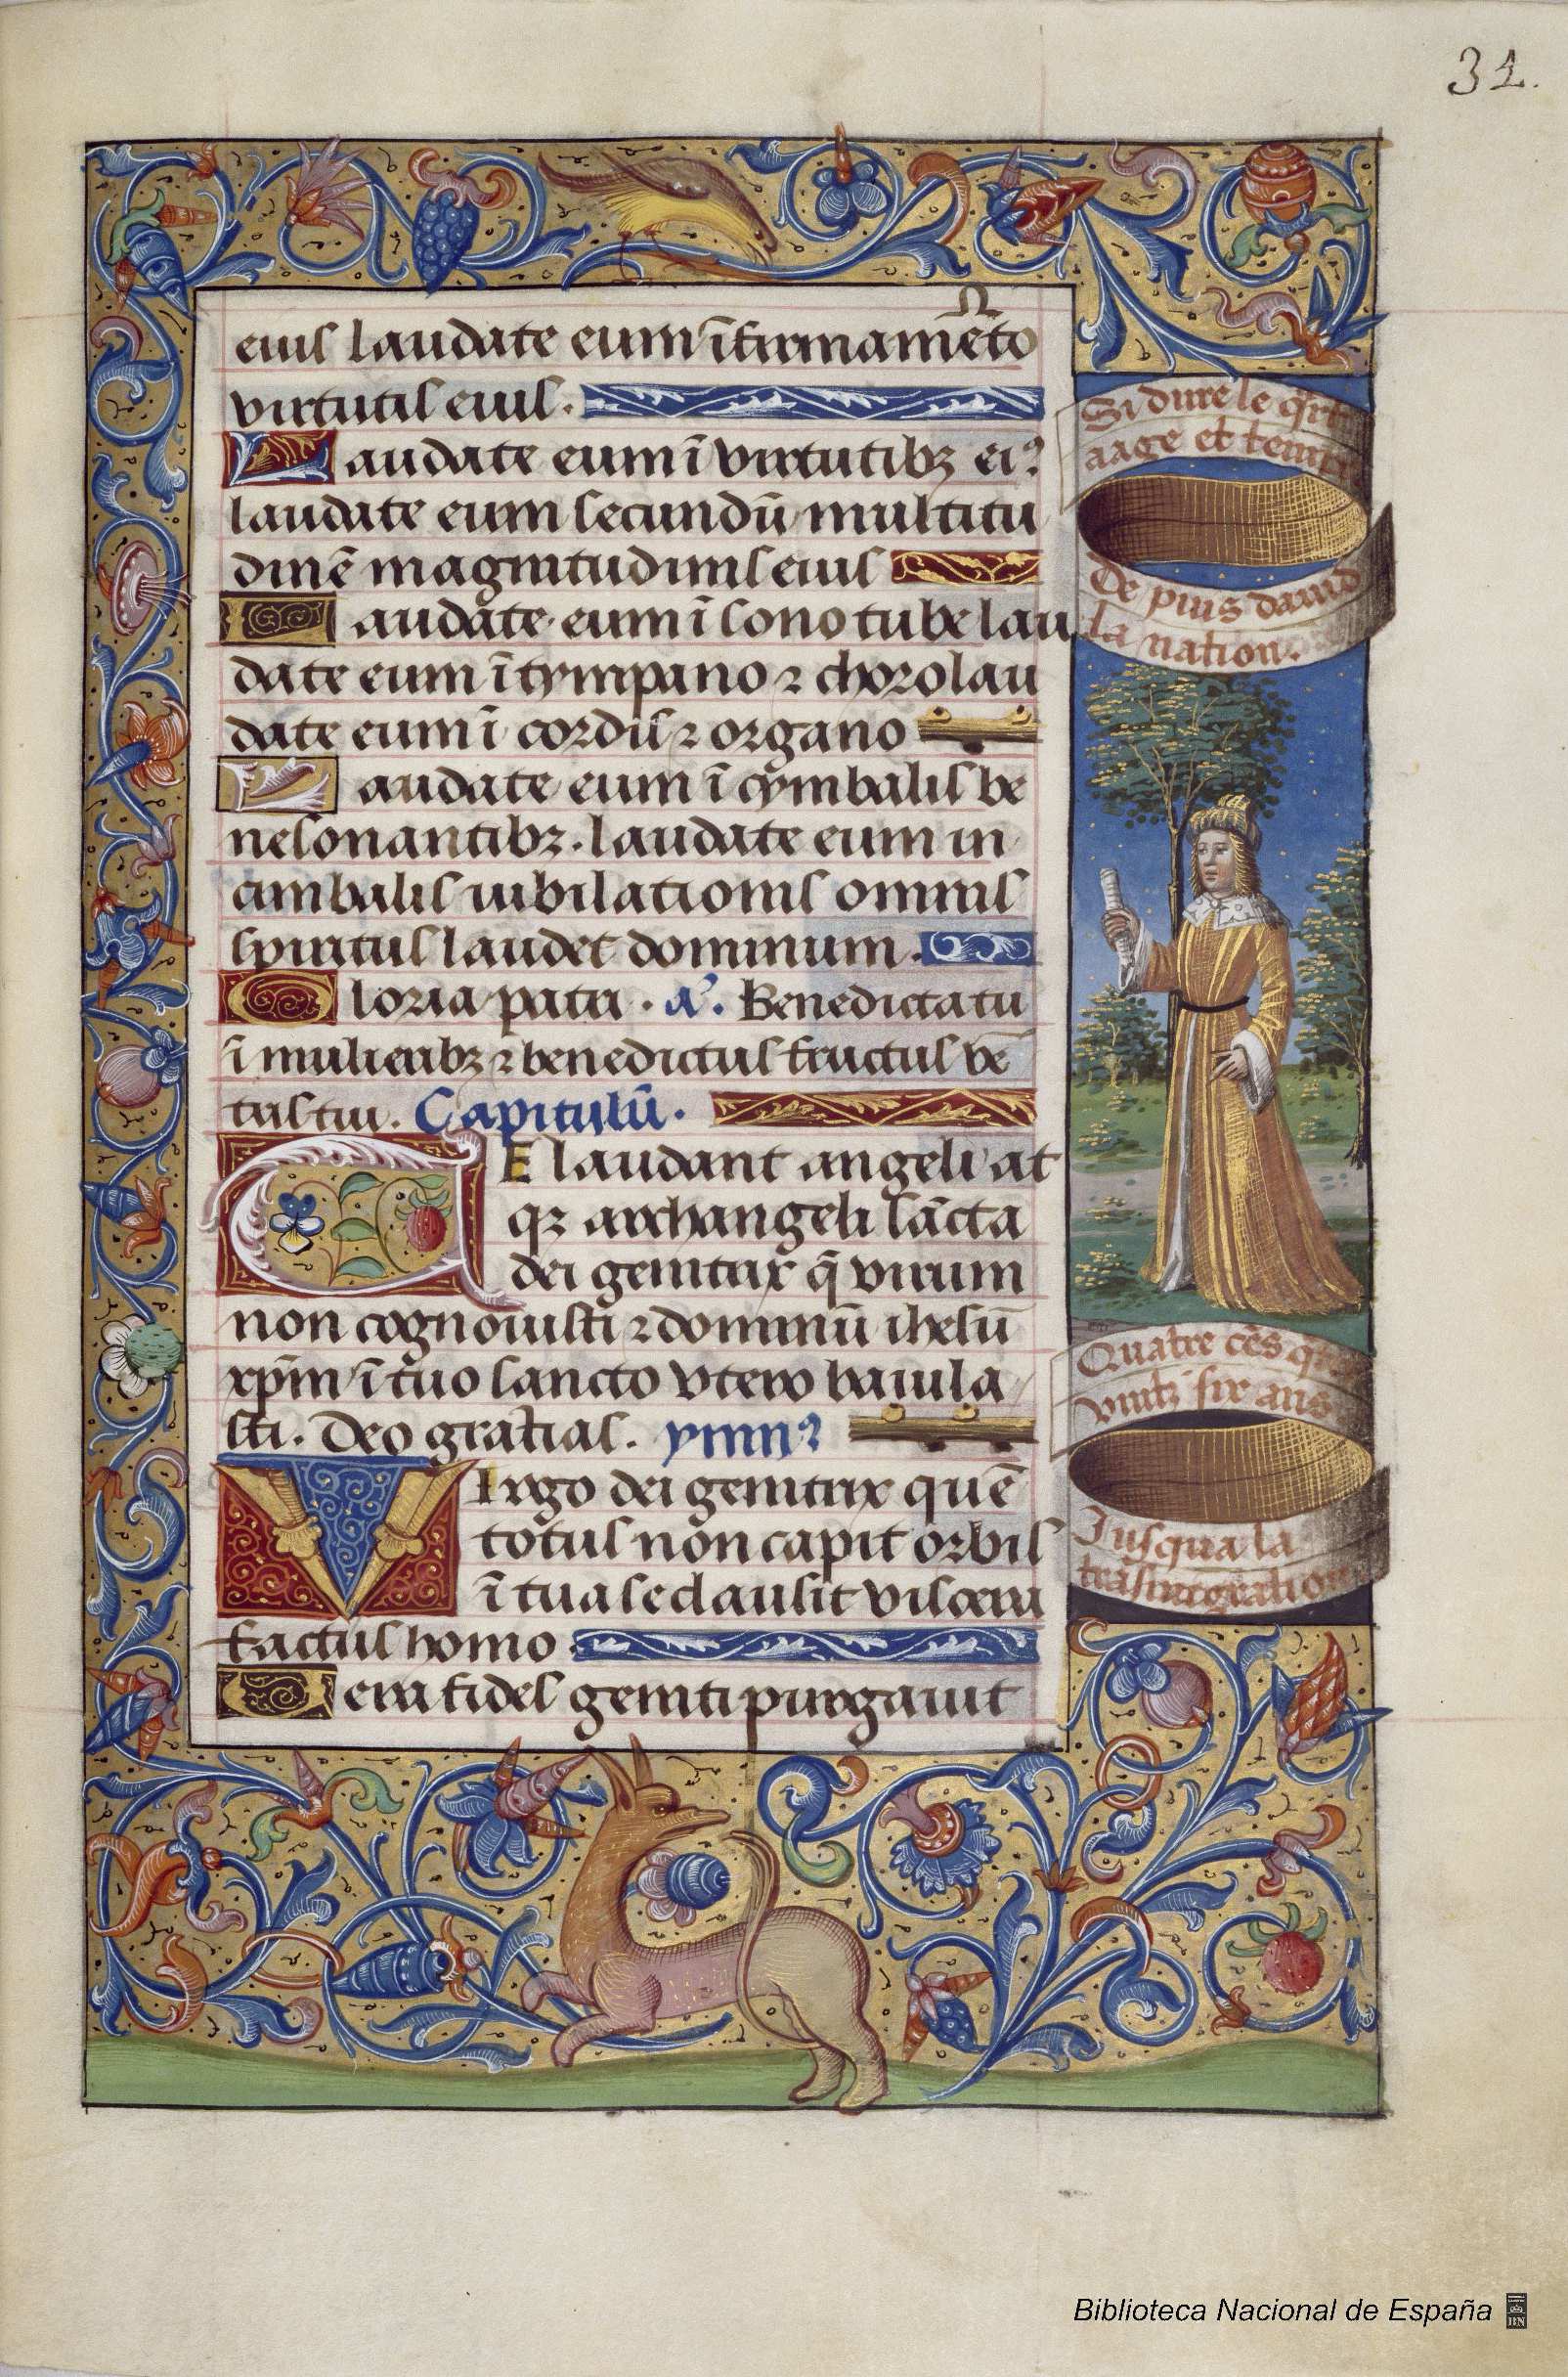 31.
eius laudate eum ī firmamēto
virtutis eius.
Laudate eum ī virtutibꝫ eiꝰ
laudate eum secundū multitu
dinē magnitudinis eius
Laudate eum ī sono tube lau
date eum ī tympano ⁊ choro lau
date eum ī cordis ⁊ organo
Laudate eum ī cymbalis be
nesonantibꝫ. laudate eum in
cimbalis iubilationis omnis
spiritus laudet dominum.
Gloria patri. aꝰ. Benedicta tu
ī mulieribꝫ ⁊ benedictus fructus vē
tris tui. Capitulū.
TE laudant angeli at
qꝫ archangeli sācta
dei genitrix q̄ virum
non cognouisti ⁊ dominū ihesū
xp̄m ī tuo sancto vtero baiula
sti. Deo gratias. ymnꝰ
VIrgo dei genitrix quē
totus non capit orbis
ī tua se clausit viscera
factus homo
Uera fides geniti purgauit
Si dure le qrt
aage et temps
De puis dauid
la nation.
Quatre cēs
vintz six ans
Iusqua la
trāsmigration
Biblioteca Nacional de España